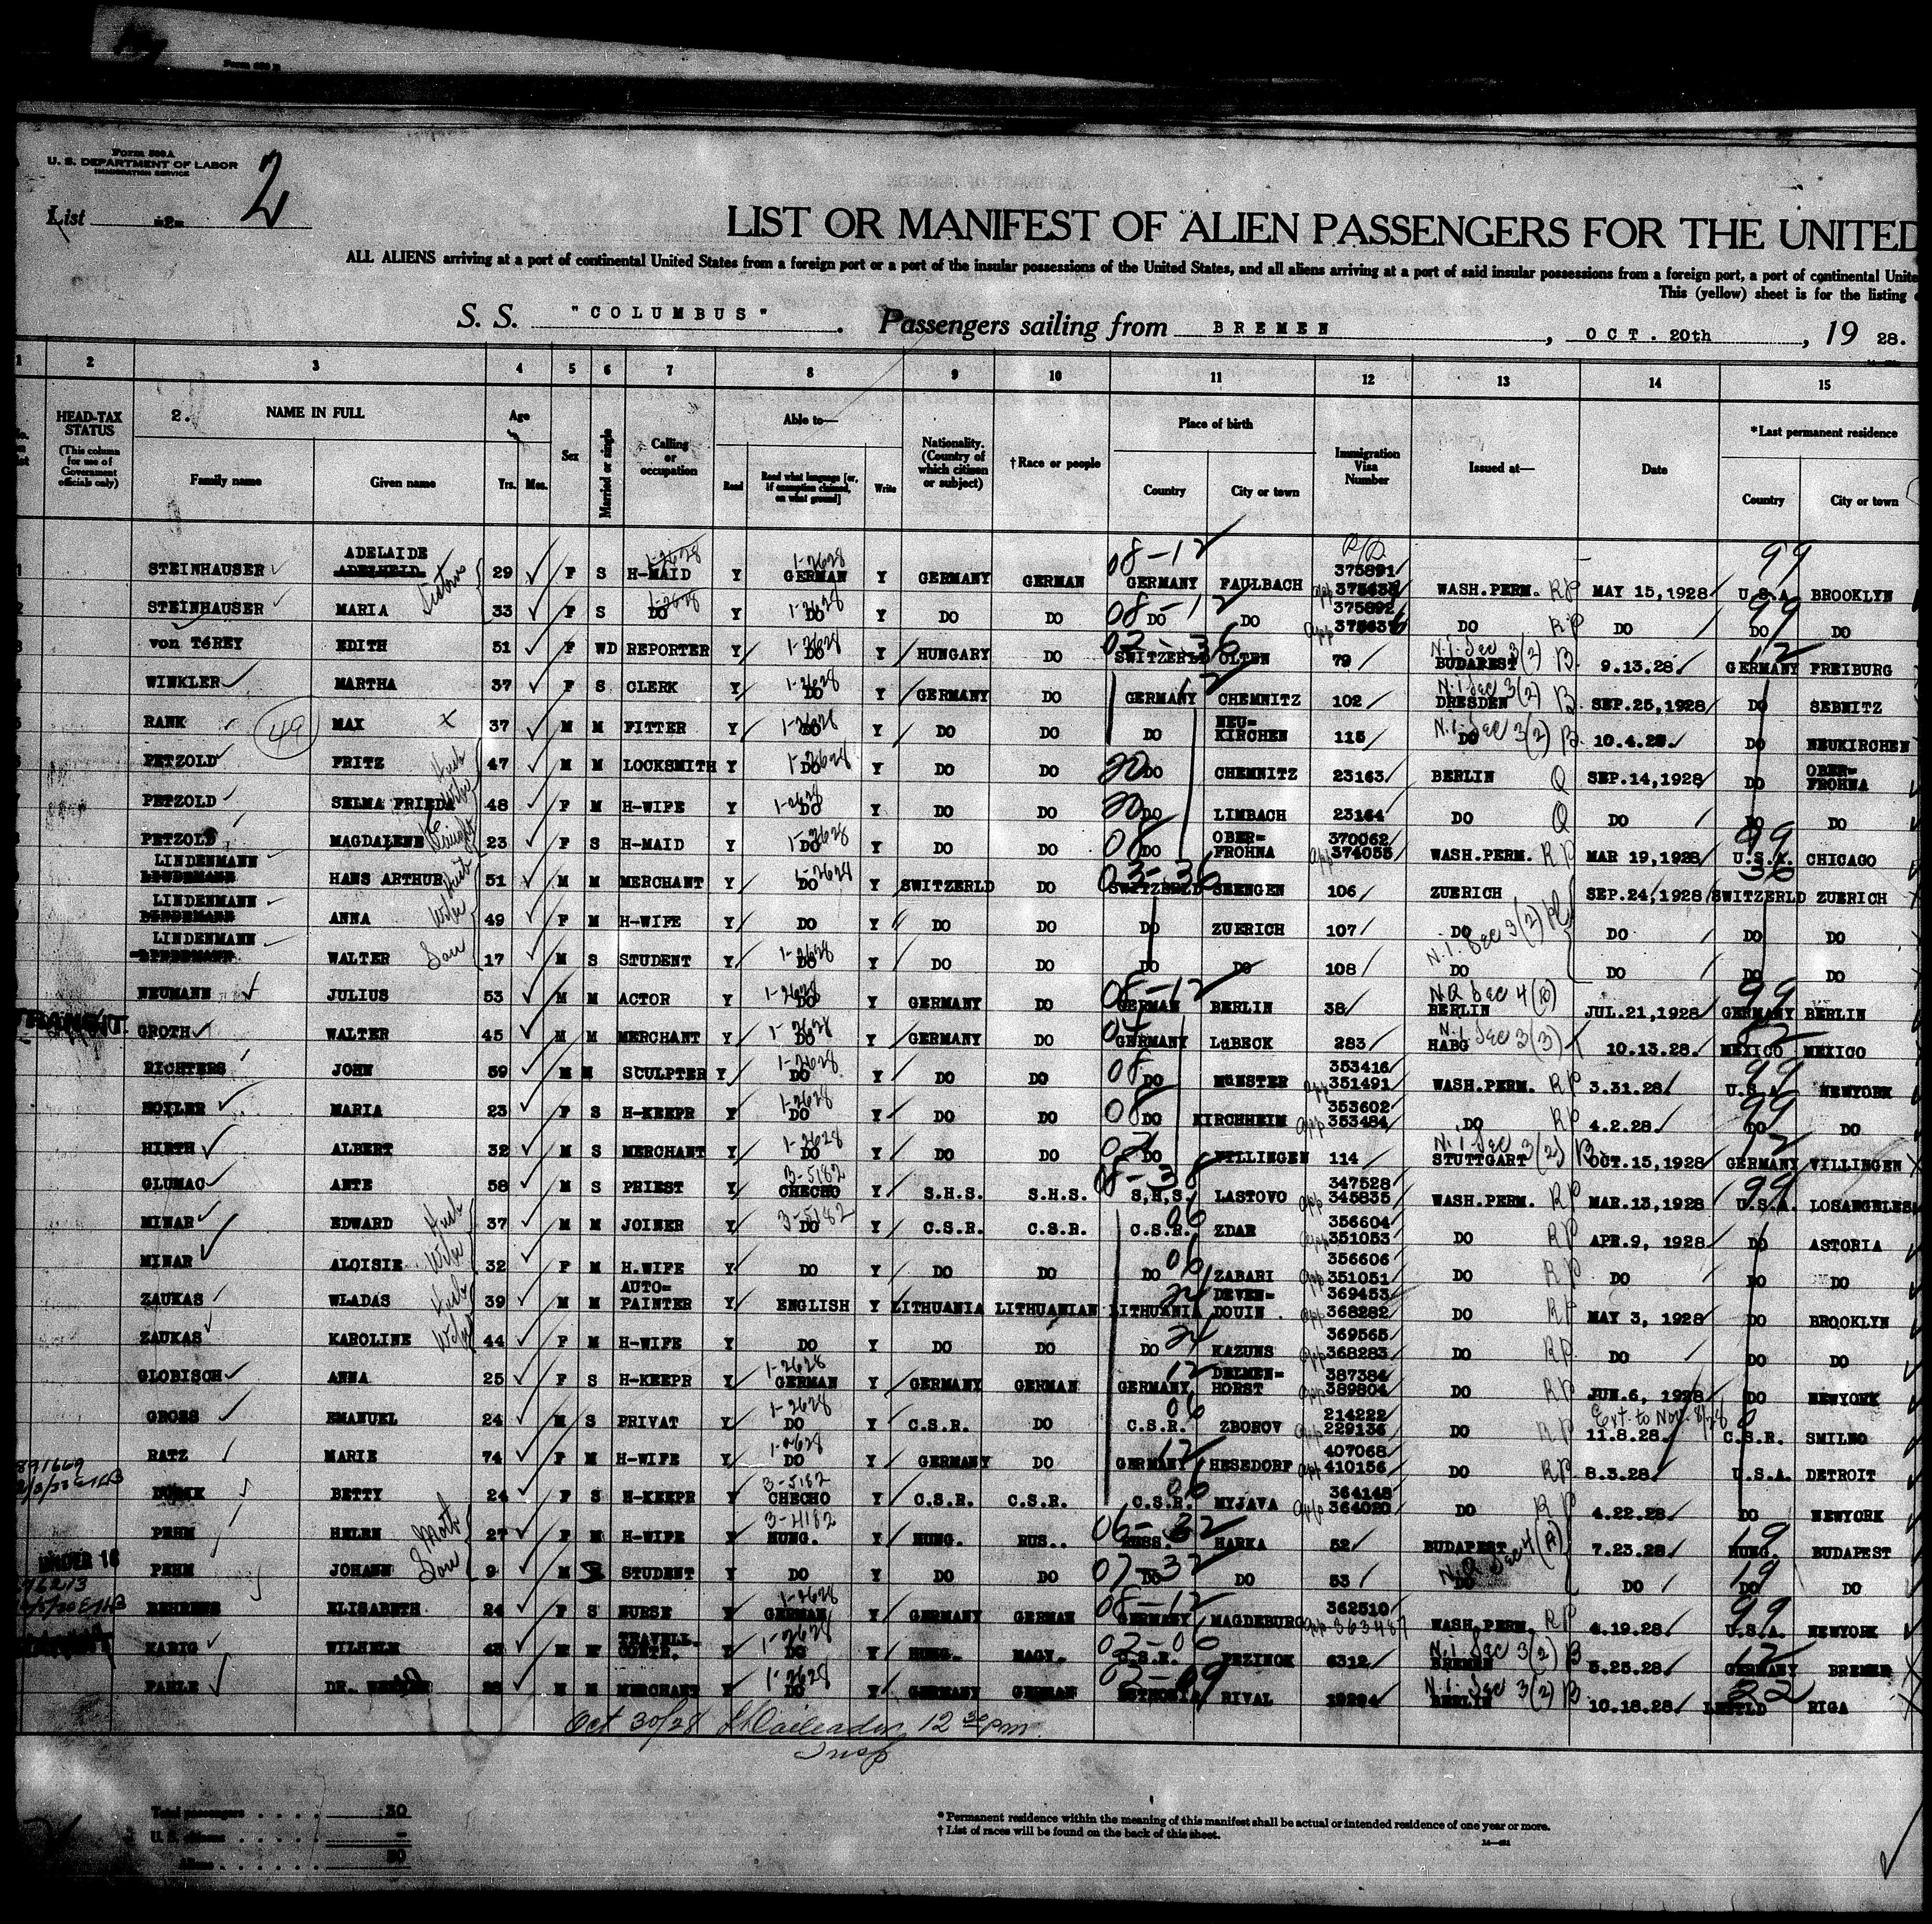 Form 500 A
U. S. DEPARTMENT OF LABOR
IMMIGRATION SERVICE
List -2- 2
LIST OR MANIFEST OF ALIEN PASSENGERS FOR THE UNITED
ALL ALIENS arriving at a port of continental United States from a foreign port or a port of the insular possessions of the United States, and all aliens arriving at a port of said insular possessions from a foreign port, a port of continental Unite
This (yellow) sheet is for the listing
S. S. "COLUMBUS". Passengers sailing from BREMEN, OCT. 20th, 19 28.
1 2 3 4 5 6 7 8 9 10 11 12 13 14 15
HEAD-TAX STATUS (This column for use of Government officials only) 2. NAME IN FULL Family name Given name Age Yrs. Mos. Sex Married or single Calling or occupation Able to— Read Read what language [or, if exemption claimed, on what ground] Write Nationality. (Country of which citizen or subject) †Race or people Place of birth Country City or town Immigration Visa Number Issued at— Date *Last permanent residence Country City or town
STEINHAUSER ADELAIDE Sisters 29 F S H-MAID 1-2628 Y GERMAN 1-2628 Y GERMANY GERMAN 08-12 GERMANY FAULBACH R/P. 375891 WASH.PERM. RP MAY 15,1928 99 U.S.A. BROOKLYN
STEINHAUSER MARIA 33 F S DO 1-2628 Y DO 1-2628 Y DO DO 08-12 DO DO 375892 DO RP DO 99 DO DO
von TéREY EDITH 51 F WD REPORTER Y DO 1-2628 Y HUNGARY DO 02-36 SWITZERLD OLTEN 79 N.I. Sec 3(2) B. BUDAPEST 9.13.28. 12 GERMANY FREIBURG
WINKLER MARTHA 37 F S CLERK Y DO 1-2628 Y GERMANY DO 12 GERMANY CHEMNITZ 102 N.I. Sec 3(2) B. DRESDEN SEP.25,1928 DO SEBNITZ
RANK 49 MAX X 37 M M FITTER Y DO 1-2628 Y DO DO DO NEU=KIRCHEN 115 N.I. Sec 3(2) B. DO 10.4.28. DO NEUKIRCHEN
PETZOLD FRITZ Husb 47 M M LOCKSMITH Y DO 1-2628 Y DO DO 20 DO CHEMNITZ 23163 BERLIN Q SEP.14,1928 DO OBER=FROHNA
PETZOLD SELMA FRIEDA Wife 48 F M H-WIFE Y DO 1-2628 Y DO DO 20 DO LIMBACH 23164 DO Q DO DO DO
PETZOLD MAGDALENE Daught 23 F S H-MAID Y DO 1-2628 Y DO DO 08 DO OBER=FROHNA 370062 app 374055 WASH.PERM. RP MAR 19,1928 99 U.S.A. CHICAGO
LINDENMANN HANS ARTHUR Husb 51 M M MERCHANT Y DO 1-2628 Y SWITZERLD DO 03-36 SWITZERLD SEENGEN 106 ZUERICH SEP.24,1928 36 SWITZERLD ZUERICH
LINDENMANN ANNA Wife 49 F M H-WIFE Y DO Y DO DO DO ZUERICH 107 DO N.I. Sec 3(2) DO DO DO
LINDENMANN WALTER Son 17 M S STUDENT Y DO 1-2628 Y DO DO DO DO 108 DO DO DO DO
NEUMANN JULIUS 53 M M ACTOR Y DO 1-2628 Y GERMANY DO 08-12 GERMAN BERLIN 38 N.Q Sec 4(b) BERLIN JUL.21,1928 99 GERMANY BERLIN
TRANSIT GROTH WALTER 45 M M MERCHANT Y DO 1-2628 Y GERMANY DO 04 GERMANY LüBECK 283 N.I Sec 3(3) HABG 10.13.28. MEXICO MEXICO
RICHTERS JOHN 59 M M SCULPTER Y DO 1-2628 Y DO DO 08 DO MüNSTER 353416 app 351491 WASH.PERM. RP 3.31.28 99 U.S.A. NEWYORK
HOYLER MARIA 23 F S H-KEEPR Y DO 1-2628 Y DO DO 08 DO KIRCHHEIM 353602 app 353484 DO RP 4.2.28. 99 DO DO
HIRTH ALBERT 32 M S MERCHANT Y DO 1-2628 Y DO DO 02 DO VILLINGEN 114 N.I Sec 3(2) B STUTTGART OCT.15,1928 12 GERMANY VILLINGEN
GLUMAC ANTE 58 M S PRIEST Y CHECHO 3-5182 Y S.H.S. S.H.S. 08-38 S.H.S. LASTOVO 347528 app 345835 WASH.PERM. RP MAR.13,1928 99 U.S.A. LOSANGELES
MINAR EDWARD Husb 37 M M JOINER Y DO 3-5182 Y C.S.R. C.S.R. 06 C.S.R. ZDAR 356604 app 351053 DO RP APR.9, 1928 DO ASTORIA
MINAR ALOISIE Wife 32 F M H.WIFE Y DO Y DO DO 06 DO ZABARI 356606 app 351051 DO RP DO DO DO
ZAUKAS WLADAS Husb 39 M M AUTO=PAINTER Y ENGLISH Y LITHUANIA LITHUANIAN LITHUANIA DEVEN=DOUIN 369453 app 368282 DO RP MAY 3, 1928 DO BROOKLYN
ZAUKAS KAROLINE Wife 44 F M H-WIFE Y DO Y DO DO DO KAZUNS 369565 app 368283 DO RP DO DO DO
GLOBISCH ANNA 25 F S H-KEEPR Y GERMAN 1-2628 Y GERMANY GERMAN 12 GERMANY DELMEN=HORST 387384 app 389804 DO RP JUN.6, 1928 DO NEWYORK
GROSS EMANUEL 24 M S PRIVAT Y DO 1-2628 Y C.S.R. DO 06 C.S.R. ZBOROV 214222 app 229136 DO RP Ext. to Nov. 8/28 11.8.28. C.S.R. SMILNO
RATZ MARIE 74 F M H-WIFE Y DO 1-2628 Y GERMANY DO 12 GERMANY HESEDORF 407068 app 410156 DO RP 8.3.28. U.S.A. DETROIT
BETTY 24 F S H-KEEPR Y CHECHO 3-5182 Y C.S.R. C.S.R. 06 C.S.R. MYJAVA 364148 app 364020 DO RP 4.22.28 DO NEWYORK
PEHM HELEN Moth 27 F M H-WIFE Y HUNG. 3-4182 Y HUNG. RUS.. 06-32 RUSS. HARKA 52 BUDAPEST 7.23.28 19 HUNG. BUDAPEST
UNDER 16 PEHM JOHANN Son 9 M S STUDENT Y DO Y DO DO 07-32 DO DO 53 DO N.Q Sec 4(A) DO 19 DO DO
BEHRENS ELISABETH 24 F S NURSE Y GERMAN 1-2628 Y GERMANY GERMAN 08-12 GERMANY MAGDEBURG 362510 app 363487 WASH.PERM. RP 4.19.28. 99 U.S.A. NEWYORK
KABIG WILHELM 43 M TRAVELL. Y DO 1-2628 Y HUNG. MAGY. 02-06 C.S.R. PEZINOK 6312 N.I. Sec 3(2) B BREMEN 5.25.28. 12 GERMANY BREMEN
PAHLE DR. M M MERCHANT Y DO 1-2628 Y GERMANY GERMAN 02-09 ESTHONIA RIVAL N.I. Sec 3(2) B BERLIN 10.18.28. 22 RIGA
Oct 30/28 12 30 pm.
Insp
Total passengers . . . . 30
U. S. citizens . . . . . -
Aliens . . . . . . 30
*Permanent residence within the meaning of this manifest shall be actual or intended residence of one year or more.
† List of races will be found on the back of this sheet.